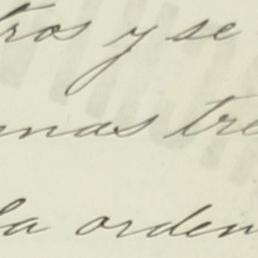 tros y se
nas tre
la orden